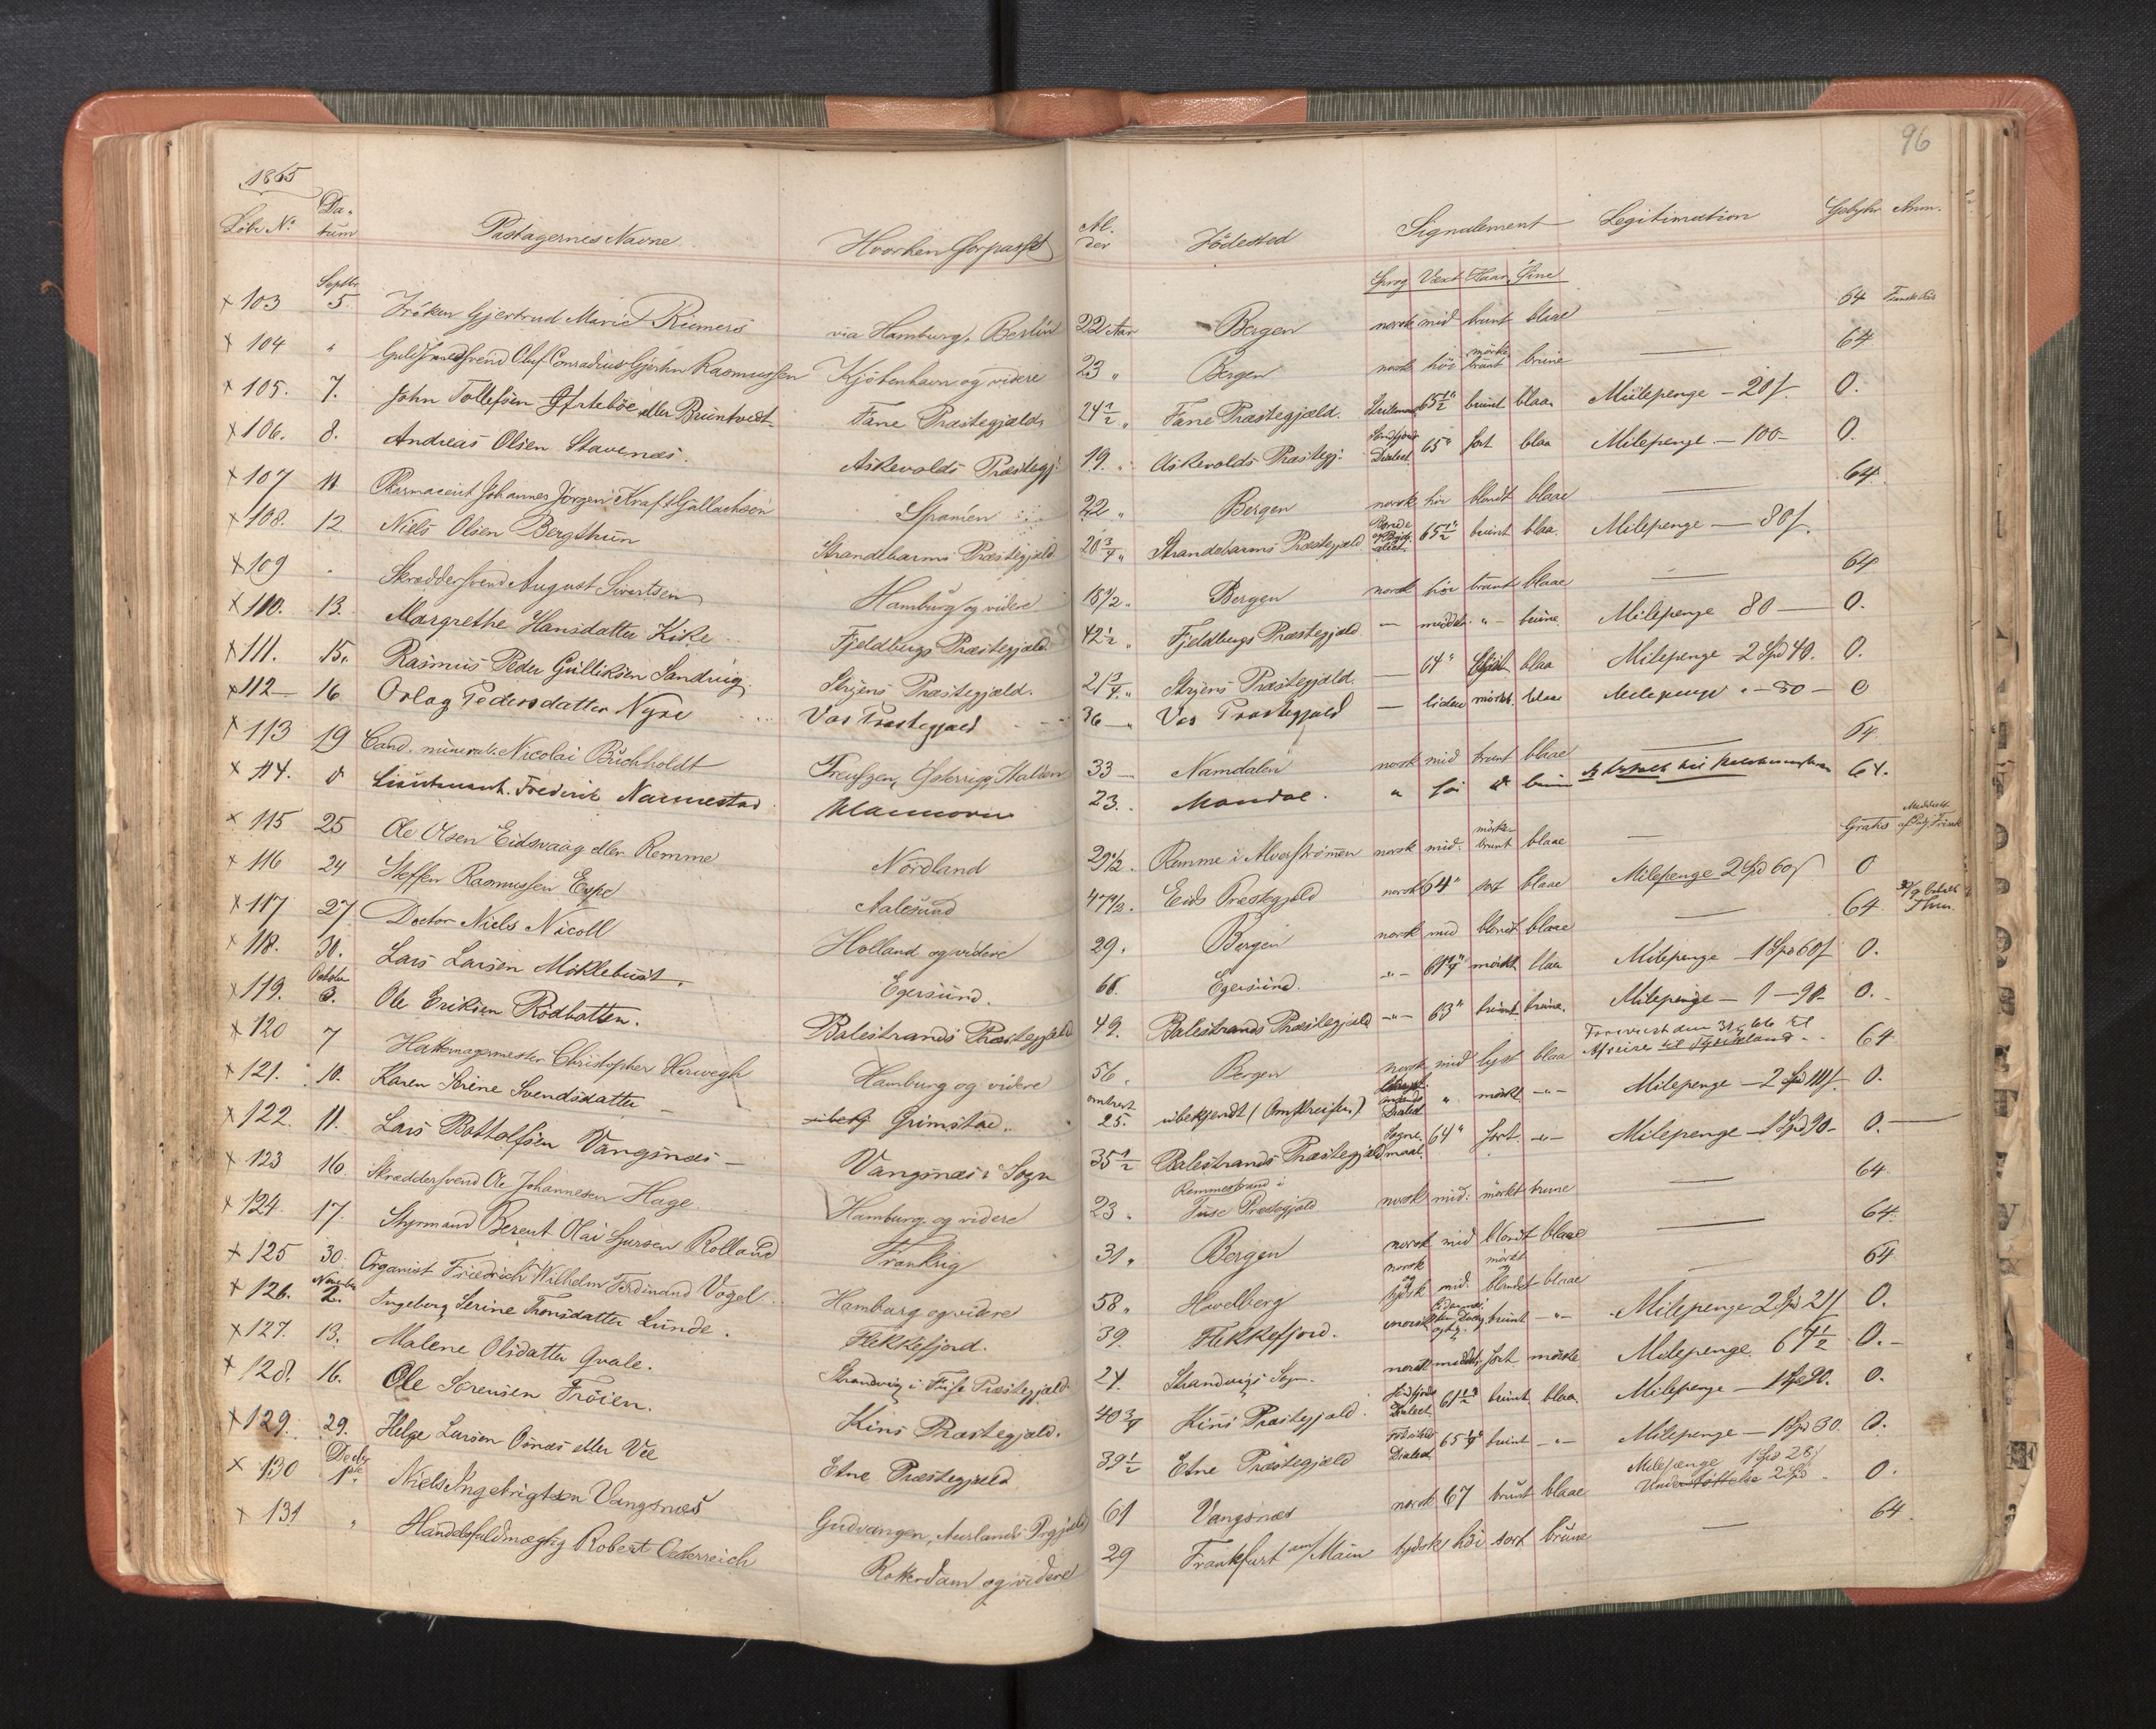 96
1865
Löbe No. Datum Passagernes Navne Hvorhen forpasset Alder Födested Signalement Legitimation Gebyhr Anm.
Sprog Væxt Haar Öine
x 103 Septbr 5. Fröken Gjertrud Marie Rumers via Hamburg, Berlin 22 Aar Bergen norsk mid brunt blaae — 64 Fransk Pas
x 104 " Guldsmedsvend Oluf Conradius Gjørhn Rasmussen Kjöbenhavn og videre 23 " Bergen norsk høi mörke brunt brune — 64
x 105. 7. John Tollefsen eller Bruntvedt Fane Præstegjæld 24 1/2 " Fane Præstegjæld. 65 1/2" brunt blaa Milepenge - 20 f. 0.
x 106. 8. Andreas Olsen Stavenæs. Askevolds Præstegj: 19. " Askevolds Præstegj: Söndfjords Dialect 65" sort blaa Milepenge - 100 - 0.
x 107 11 Pharmaceut Johannes Jörgen Kraft Gallachsen Spanien 22 " Bergen norsk høi blondt blaae — 64
x 108. 12 Niels Olsen Bergthun Strandbarms Præstegjæld 20 3/4 " Strandebarms Præstegjæld 65 1/2" brunt blaa. Milepenge — 80 f.
x 109 . Skræddersvend August Sivertsen Hamburg og videre 18 1/2 " Bergen norsk høi brunt blaae — 64
x 110. 13. Margrethe Hansdatter Kike Fjeldbergs Præstegjæld 42 1/2 " Fjeldbergs Præstegjæld — middels " - brune. Milepenge 80 — 0.
x 111. 15. Rasmus Peder Gulliksen Sandvig Stryens Præstegjæld. 21 3/4 " Stryens Præstegjæld. — 64" blaa Milepenge - 2 Spd 40. 0.
x 112 — 16 Orlog Pedersdatter Nyre Vos Præstegjæld 36 — " Vos Præstegjæld — liden mörkt. blaa Milepenge " - 80 - 0
x 113 19 Cand. mineral. Nicolai Buchholdt Preussen, Østerrig, Italien 33 — Namdalen norsk mid brunt blaae — 64
x 114. d Lieutenant. Frederik Nannestad Hannover 23. . Mandal. " høi d brune 64.
x 115 25 Ole Olsen Eidsvaag eller Remme Nordland 29 1/2 . Remme i Alverströmen norsk mid. mörke brunt blaae — Gratis Meddelt
x 116 24 Steffen Rasmussen Eype Aalesund 47 1/2 . Eids Præstegjæld norsk 64" sort blaae Milepenge 2 Spd 60 f 0
x 117 27 Doctor Niels Nicoll Holland og videre 29. Bergen norsk mid blondt blaae — 64 30/9 betalt
x 118. 30. Lars Larsen Möklebust. Egersund. 66. Egersund. " - mörkt blaa Milepenge - 1 Spd 60 f 0.
x 119. October 3. Ole Eriksen Rödbotten. Balestrands Præstegjæld 49. Balestrands Præstegjæld - " - 63" brunt brune. Milepenge - 1 - 90 - 0.
x 120 7 Hattemagermester Christopher Herwegh Hamburg og videre 56. Bergen norsk mid lyst blaa Forevist den 31/5 66 til Afreise til Tydskland - 64
x 121. 10. Karen Serine Svendsdatter ubekj Grimstad. omtrent 25. ubekjendt (Omstreifer) Dialect " mörkt - " - Milepenge - 2 Spd 111 f. 0.
x 122. 11. Lars Bottolfsen Vangsnæs — Vangsnæs i Sogn 35 1/2 Balestrands Præstegjæld Sogne maal. 64" sort. - " - Milepenge - 1 Spd 90 - 0. —
x 123 16. Skræddersvend Ole Johannesen Hage Hamburg og videre 23. Remmestrand i Fuse Præstegjæld norsk mid: mörkt brune — 64
x 124. 17. Styrmand Berent Olai Gursen Rolland Frankrig 31 " Bergen norsk mid blondt blaae — 64
x 125 30. Organist Friedrich Wilhelm Ferdinand Vogel Hamburg og videre 58 " Havelberg norsk og tydsk mid. mörkt og blondt blaae — 64
x 126. Novembr 2. Ingeborg Serine Thonsdatter Lunde. Flekkefjord. 39. Flekkefjord. norsk brunt - " - Milepenge 2 Spd 21 f 0.
x 127. 13. Malene Olsdatter Qvale. Strandvig i Fuse Præstegjæld 24. Strandvigs Sogn. norsk middels sort mörke Milepenge 67 1/2 0. -
x 128. 16. Ole Sörensen Fröien. Kins Præstegjæld. 40 3/4 Kins Præstegjæld. Söndfjords Dialect 61 1/2" brunt blaa. Milepenge - 1 Spd 90. 0.
x 129. 29. Helge Larsen Osnæs eller Vee Etne Præstegjæld 39 1/2 Etne Præstegjæld Dialect 65 1/4" brunt - " - Milepenge - 1 Spd 30. 0.
x 130 Decbr 1ste Niels Ingebrigtsen Vangsnæs Gudvangen, Aurlands Prgjæld 61 Vangsnæs norsk 67 brunt blaae Milepenge 1 Spd 28 f Understöttelse 2 Spd - 0.
x 131 " Handelsfuldmægtig Robert Oesterreich Rotterdam og videre 29 Frankfurt am/Main tydsk høi sort brune — 64.